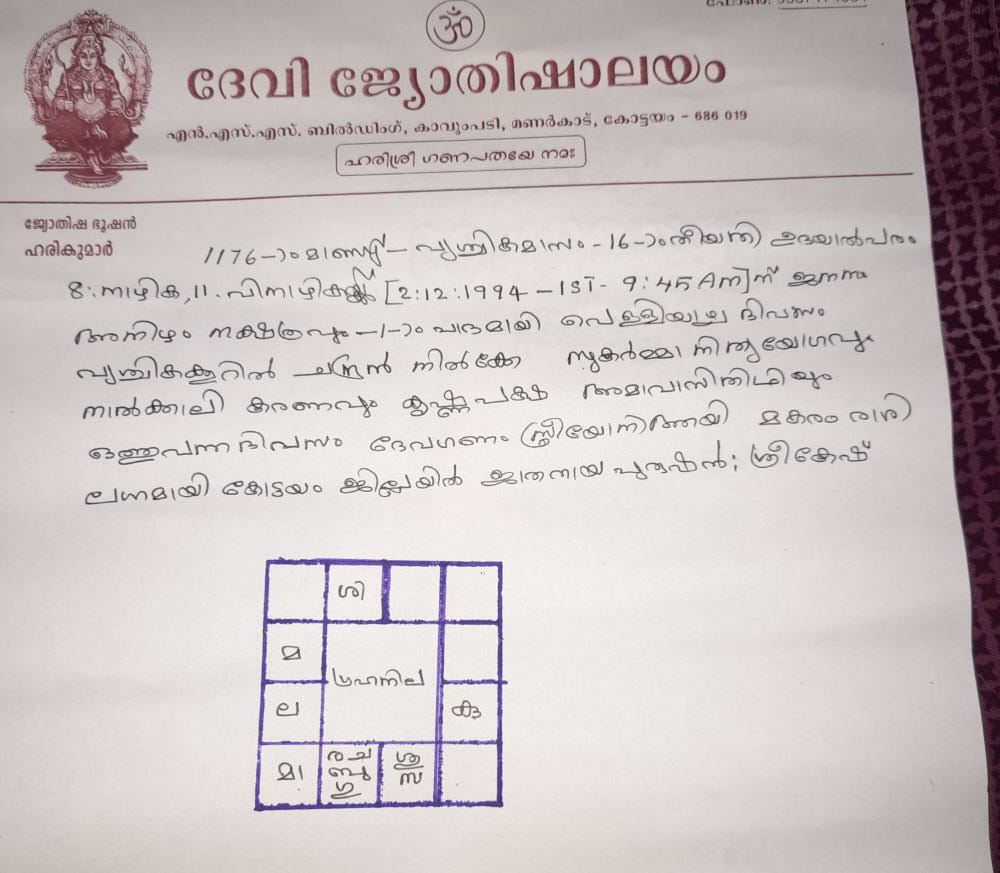 ॐ
ദേവി ജ്യോതിഷാലയം
എൻ.എസ്.എസ്. ബിൽഡിംഗ്, കാവുംപടി, മണർകാട്, കോട്ടയം - 686 019
ഹരിശ്രീ ഗണപതയേ നമഃ
ജ്യോതിഷ ഭൂഷൻ
ഹരികുമാർ
1176-ാംമാണ്ട് - വൃശ്ചികമാസം - 16-ാംതീയതി ഉദയാൽപരം
8:നാഴിക, 11.വിനാഴികയ്ക്ക് [2:12:1994 - IST- 9:45 Am]ന് ജനനം
അനിഴം നക്ഷത്രവും-1-ാം പാദമായി വെള്ളിയാഴ്ച ദിവസം
വൃശ്ചികക്കൂറിൽ ചന്ദ്രൻ നിൽക്കേ സുകർമ്മാ നിത്യയോഗവും
നാൽക്കാലി കരണവും കൃഷ്ണപക്ഷ അമാവാസിതിഥിയും
ഒത്തുവന്നദിവസം ദേവഗണം സ്ത്രീയോനിത്തായി മകരം രാശി
ലഗ്നമായി കോട്ടയം ജില്ലയിൽ ജാതനായ പുരുഷൻ; ശ്രീകേഷ്
ശി
മ
ഗ്രഹനില
ല
കു
മാ
ര ച
ബു
ഗു
ശു
സ